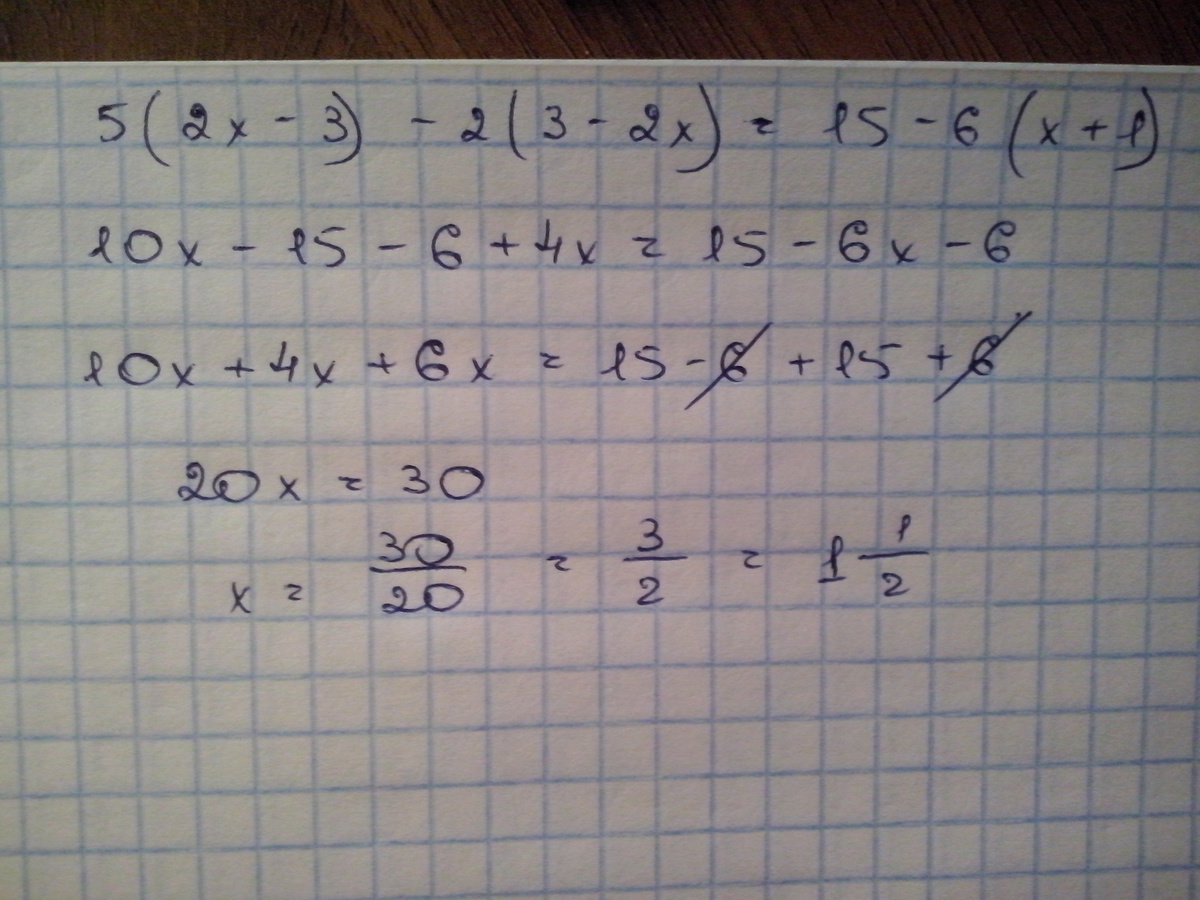 5(2x - 3) - 2(3 - 2x) = 15 - 6(x + 1)
10x - 15 - 6 + 4x = 15 - 6x - 6
10x + 4x + 6x = 15 - 6 + 15 + 6
20x = 30
x = 30/20 = 3/2 = 1 1/2